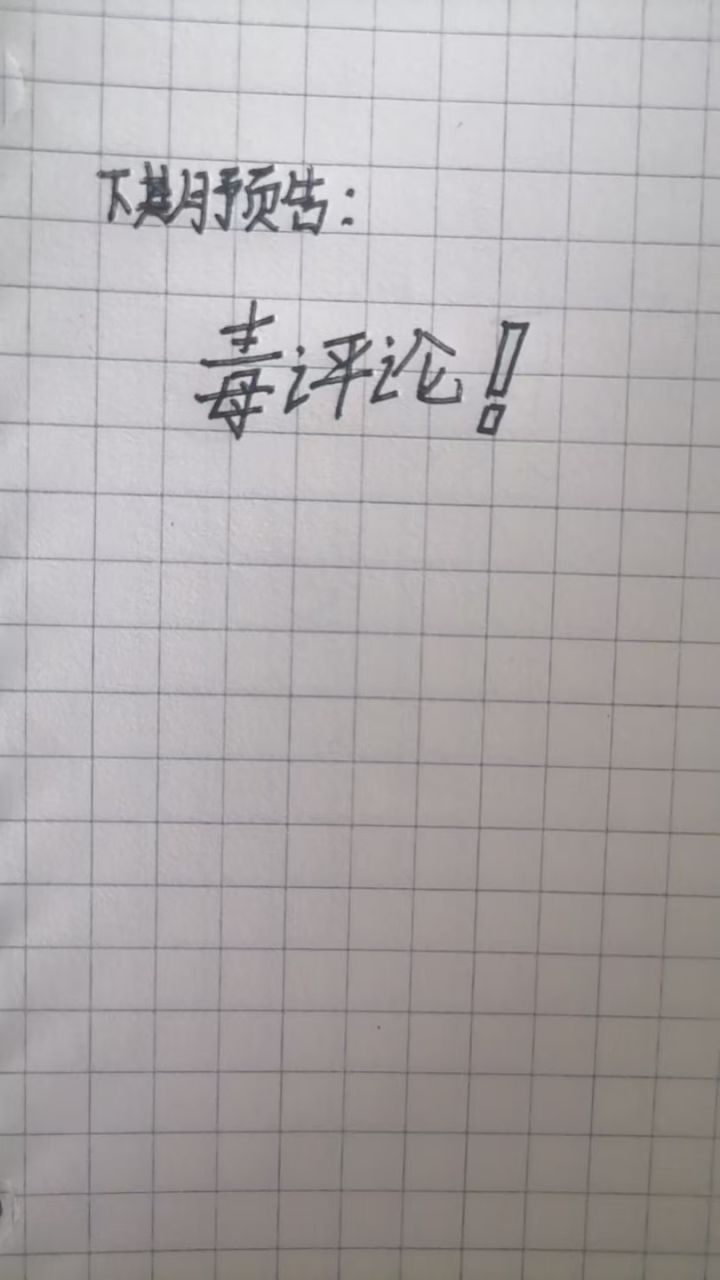 下期预告：
毒评论！